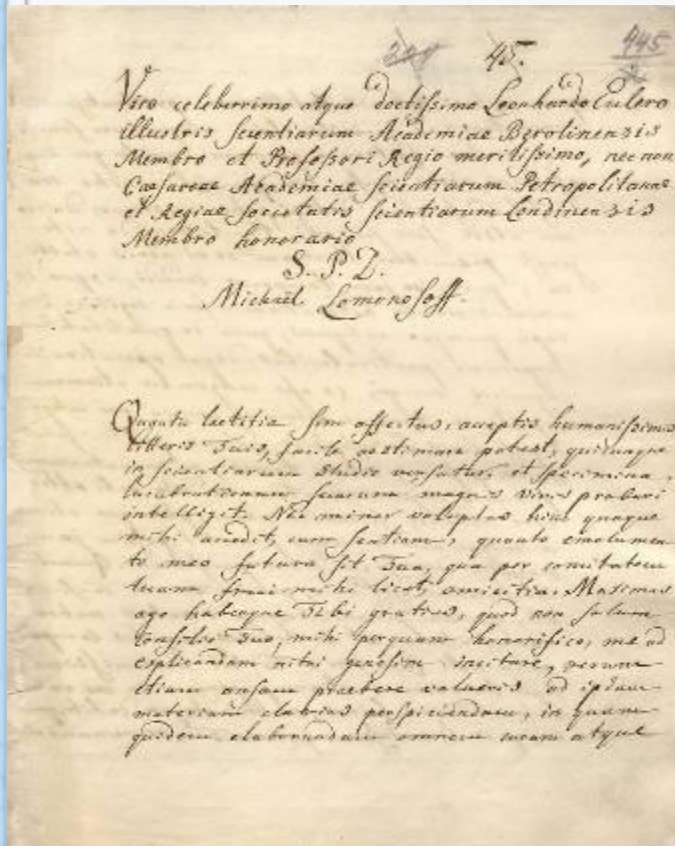 45.
445
Viro celeberrimo atque doctissimo Leonhardo Eulero
illustris scientiarum Academiae Berolinensis
Membro et Professori Regio meritissimo, nec non
Caesareae Academiae scientiarum Petropolitanae
et Regiae societatis scientiarum Londinensis
Membro honorario
S. P. D.
Michaël Lomonosoff.
Quanta laetitia sim affectus, acceptis humanissimis
litteris Tuis, facile aestimare potest, quicunque
in scientiarum studio versatur, et specimina
lucubrationum suarum magnis viris probari
intelligit. Nec minor voluptas hinc quoque
mihi accedit, cum sentiam, quanto emolumen
to meo futura sit Tua, qua per comitatem
tuam frui mihi licet, amicitia. Maximas
ago habeoque Tibi gratias, quod non solum
consilio Tuo, mihi perquam honorifico, me ad
explicandam nitri genesim incitare, verum
etiam ansam praebere volueris ad ipsam
materiam clarius perspiciendam, in quam
quidem elaborandam omnem meam atque